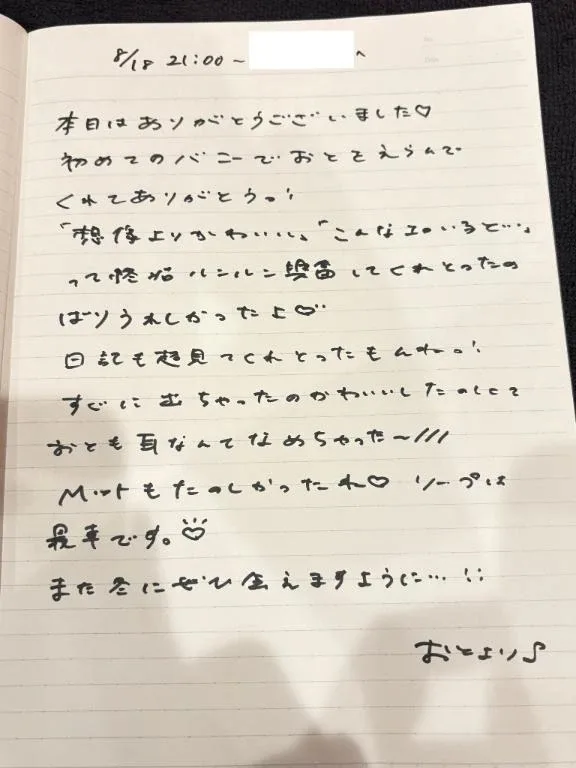 8/18 21:00~ へ
本日はありがとうございました♡
初めてのバニーでおとをえらんで
くれてありがとうっ!
「想像よりかわいい」「こんなエロいると…」
って終始ルンルン興奮してくれとったの
ばりうれしかったよ♡
日記も超見てくれとったもんねっ!
すぐに むちゃったのかわいいしたのしくて
おとも耳なんてなめちゃった~///
Mットもたのしかったね♡ ソープは
最幸です。♡
また冬にぜひ会えますように…!!
おとより♪